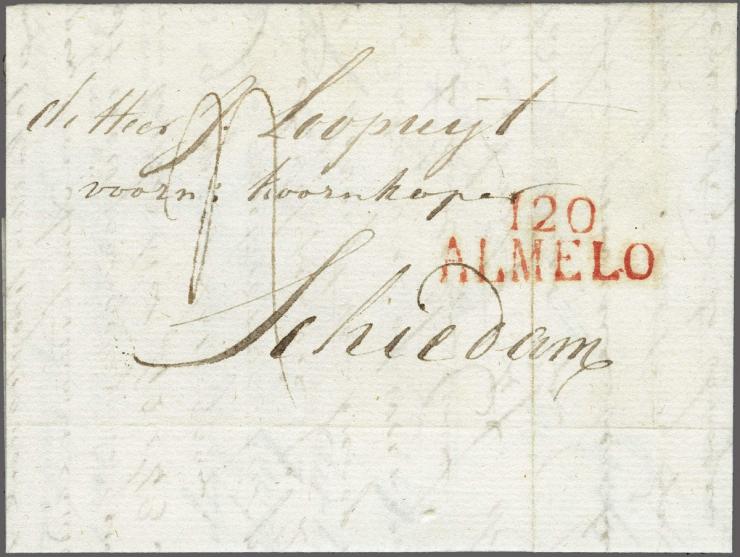 de Heer J: Loopuijt
voorn: koornkoper
120
ALMELO
Schiedam